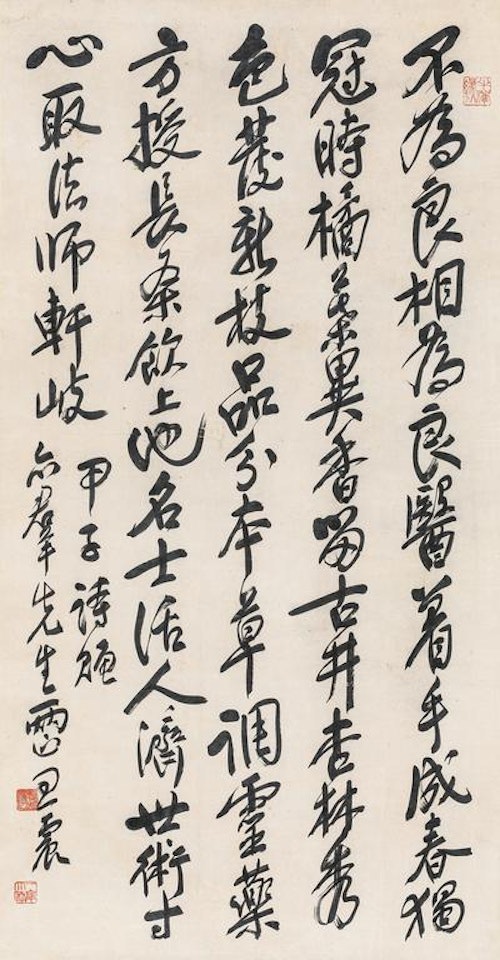 不為良相為良醫着手成春獨
冠時橘葉異香留古井杏林秀
色發新枝品分本草調靈藥
方授長桑飲上池名士活人濟世術寸
心取法師軒岐
甲子詩贈
亦羣先生 王震